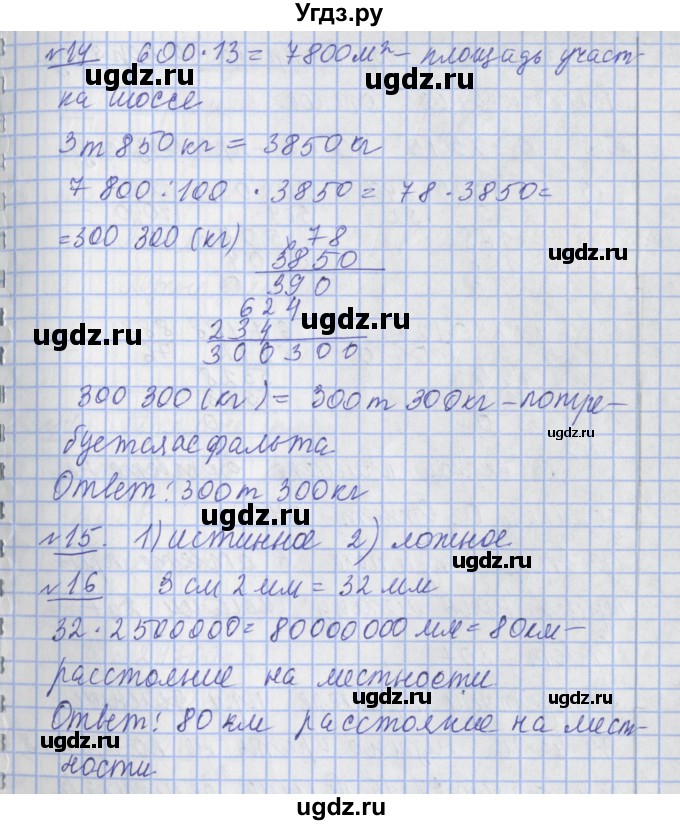 Угдз.ру
№14 600·13 = 7800м² – площадь участ-
ugdz.ru ugdz.ru
ка шоссе
3т 850 кг = 3850 кг
7 800 : 100 · 3850 = 78 · 3850 =
= 300 300 (кг)
× 78
ugdz.ru
3850
390
624
ugdz.ru
234
300300
300 300 (кг) = 300т 300кг – потре-
ugdz.ru
буется асфальта
Ответ: 300т 300кг
ugdz.ru
№15. 1) истинное 2) ложное
№16 3 см 2 мм = 32 мм
ugdz.ru
32 · 2500000 = 80000000 мм = 80км –
расстояние на местности
ugdz.ru
Ответ: 80 км расстояние на мест-
ugdz.ru ugdz.ru
ности
ugdz.ru